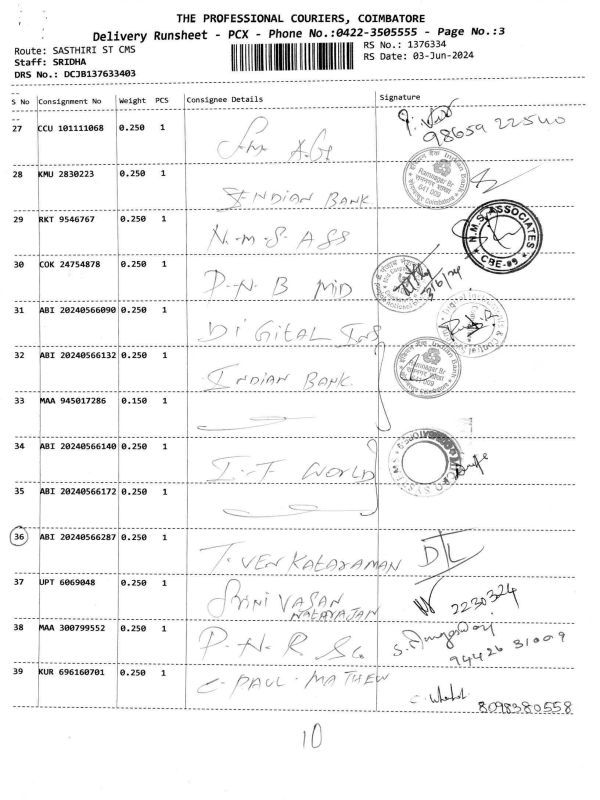 THE PROFESSIONAL COURIERS, COIMBATORE
Delivery Runsheet - PCX - Phone No.:0422-3505555 - Page No.:3
Route: SASTHIRI ST CMS
RS No.: 1376334
Staff: SRIDHA
RS Date: 03-Jun-2024
DRS No.: DCJB137633403
S No Consignment No Weight PCS Consignee Details Signature
27 CCU 101111068 0.250 1 98659 22540
28 KMU 2830223 0.250 1 INDIAN BANK
29 RKT 9546767 0.250 1 N.M.S. ASS N.M.S. ASSOCIATES CBE-09
30 COK 24754878 0.250 1 P.N.B MID 3/6/24
31 ABI 20240566090 0.250 1 DIGITAL INS
32 ABI 20240566132 0.250 1 INDIAN BANK
33 MAA 945017286 0.150 1
34 ABI 20240566140 0.250 1 I.T WORLD
35 ABI 20240566172 0.250 1
36 ABI 20240566287 0.250 1 T. VENKATARAMAN DL
37 UPT 6069048 0.250 1 SRINIVASAN NATARAJAN 2230324
38 MAA 300799552 0.250 1 P.N.R 94426 31009
39 KUR 696160701 0.250 1 C. PAUL. MATHEW 8098380558
10